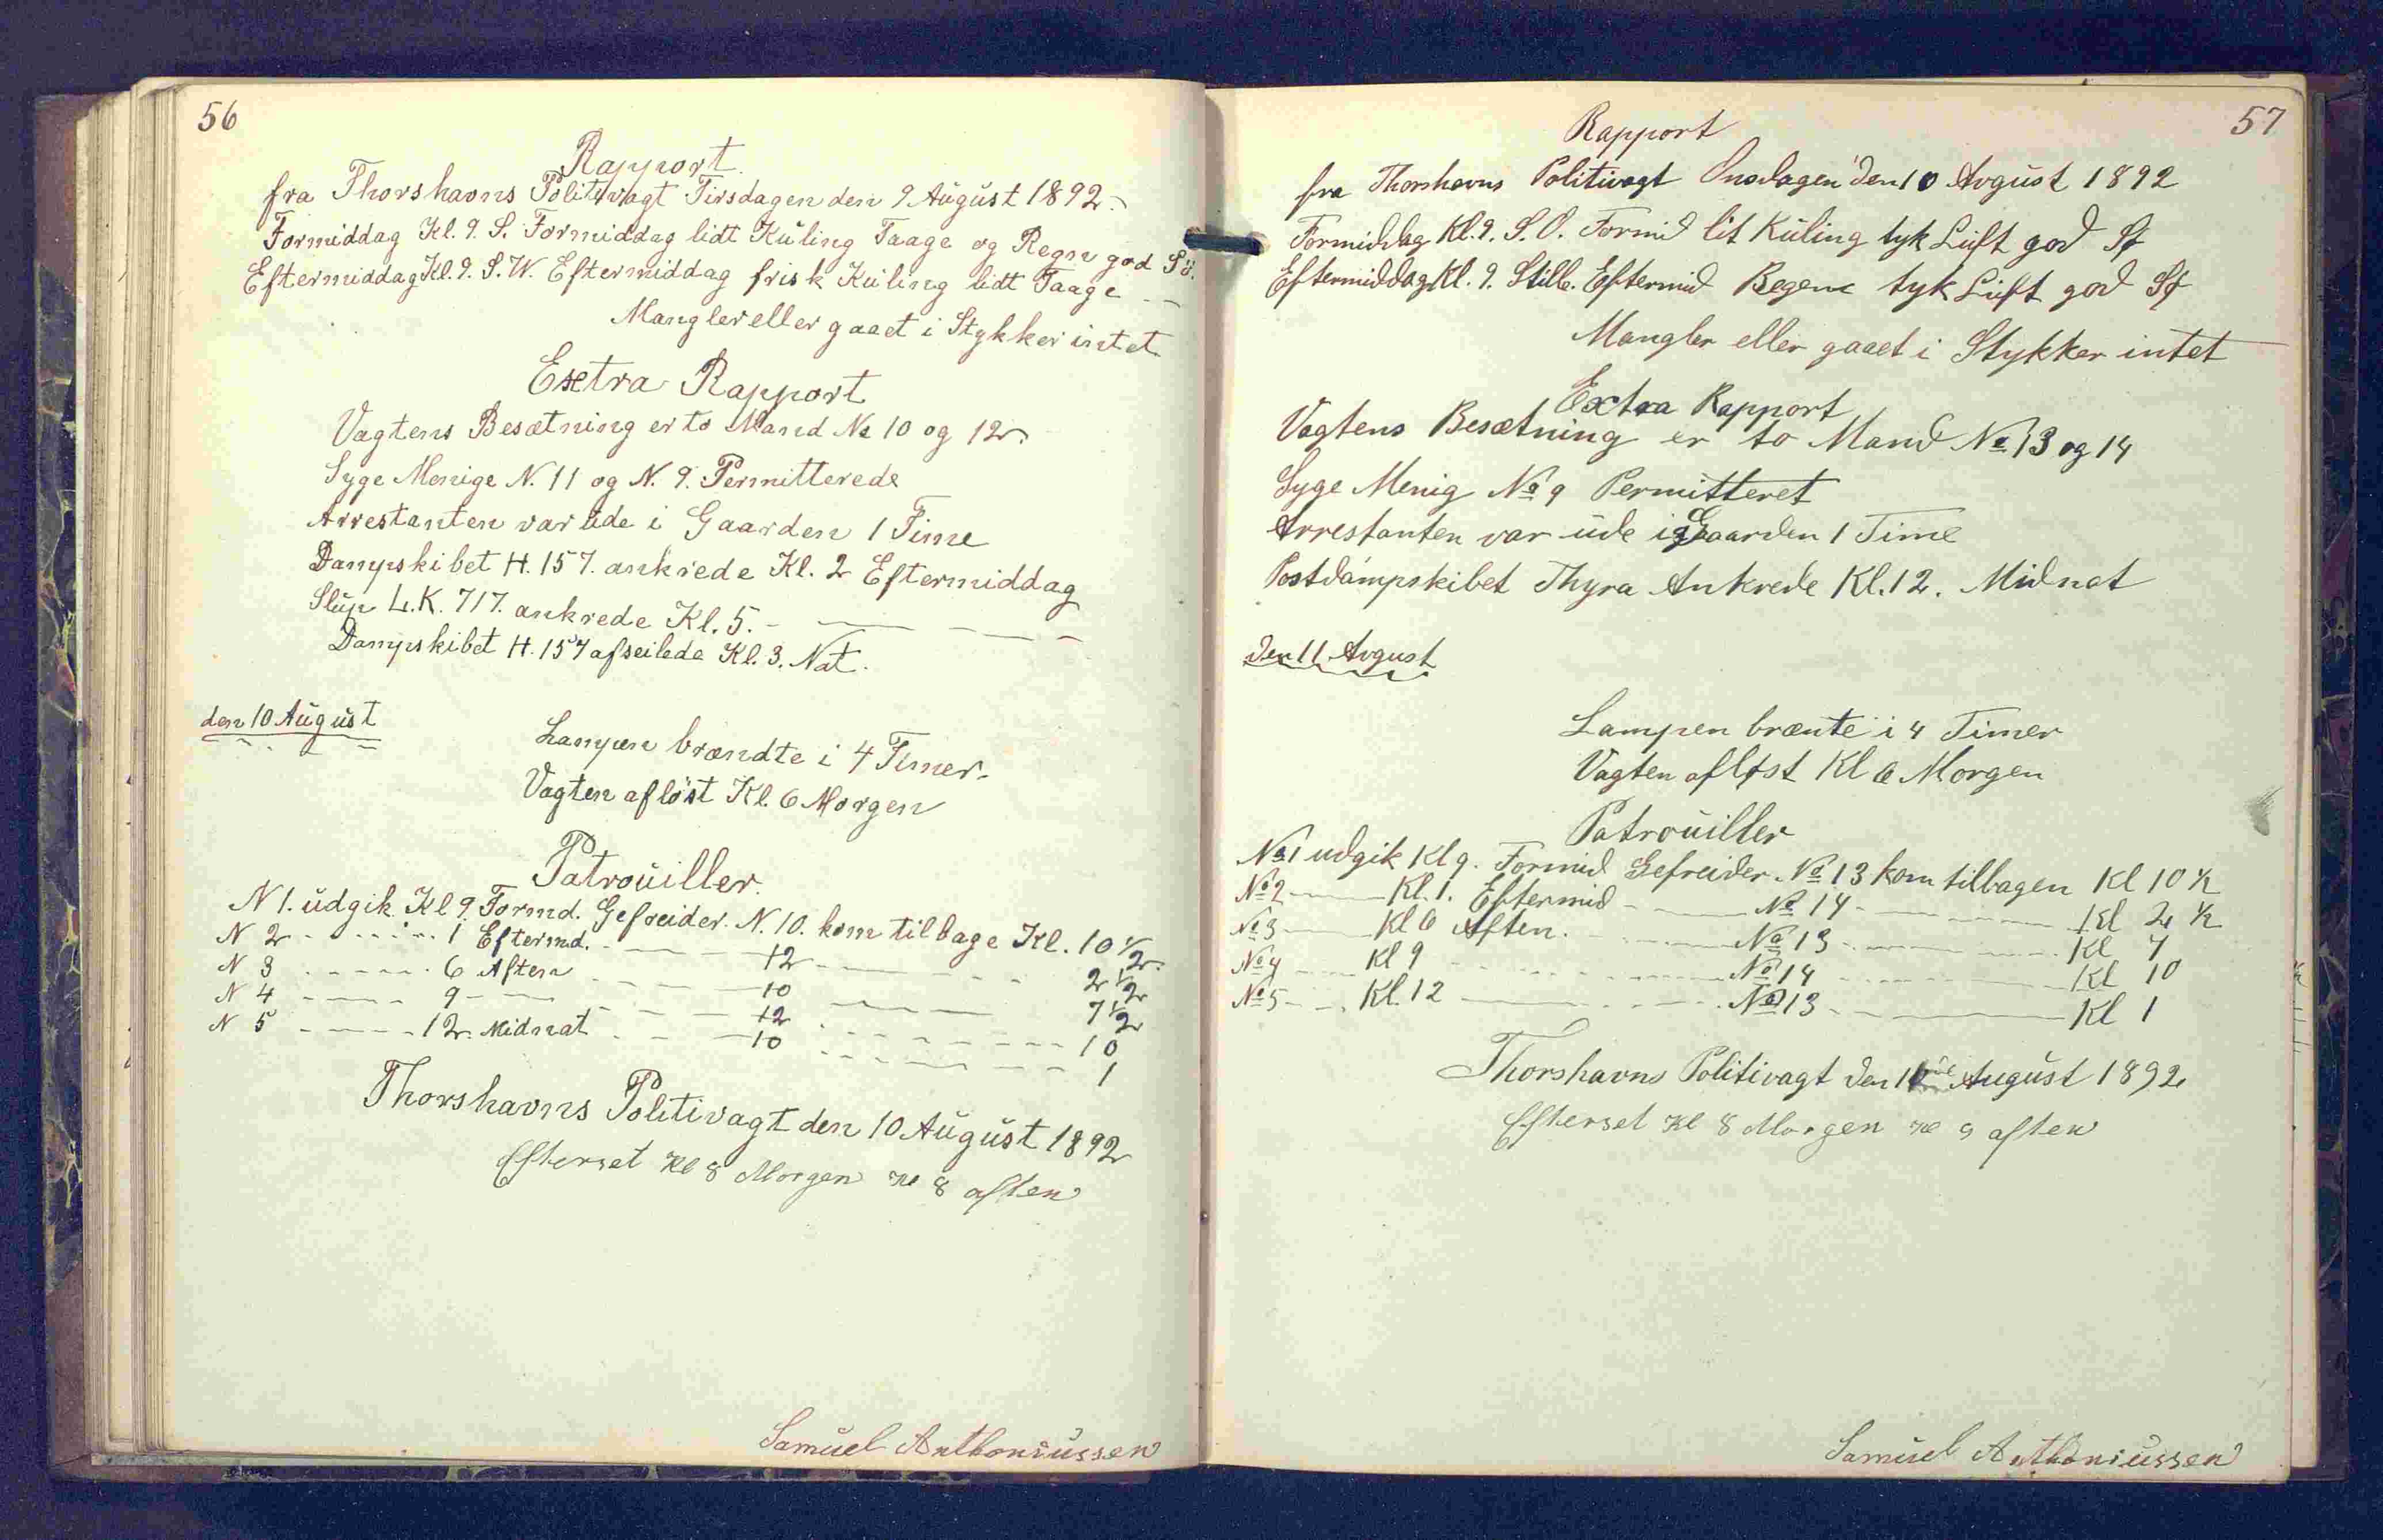 56
Rapport
fra Thorshavns Politivagt Tirsdagen den 9 August 1892.
Formiddag Kl. 9. S. Formiddag lidt Kuling Taage og Regn god Sö.
Eftermiddag Kl. 9. S.W. Eftermiddag frisk Kuling lidt Taage — —
Mangler eller gaaet i Stykker intet
Extra Rapport
Vagtens Besætning er to Mand No 10 og 12.
Syge Menige N. 11 og N. 9. Permitterede
Arrestanten var ude i Gaarden 1 Time
Dampskibet H. 157. ankrede Kl. 2 Eftermiddag
Slup L.K. 717. ankrede Kl. 5. - — — — —
Dampskibet H. 157 afseilede Kl. 3. Nat.
den 10 August
Lampen brændte i 4 Timer-
Vagten aflöst Kl. 6 Morgen
Patrouiller
N 1. udgik Kl 9. Formd. Gefreider. N. 10. kom tilbage Kl. 10 1/2.
N 2 - - - - - 1 Eftermd. - — — 12 — — - - 2 1/2
N 3 - - - - - 6 Aften - - — 10 — — — 7 1/2
N 4 - - - - 9 - — - - — 12 - - - - - - 10
N 5 - - - - 12. Midnat - - — 10 - - - - - - 1
Thorshavns Politivagt den 10 August 1892
Efterset Kl 8 Morgen Kl 8 aften
Samuel Anthoniussen
57
Rapport
fra Thorshavns Politivagt Onsdagen den 10 Avgust 1892
Formiddag Kl. 9. S.O. Formid lit Kuling tyk Luft god Sø
Eftermiddag Kl. 9. Stille. Eftermid Regene tyk Luft god Sø
Mangler eller gaaet i Stykker intet
Extra Rapport
Vagtens Besætning er to Mand No 13 og 14
Syge Menig No 9 Permitteret
Arrestanten var ude i Gaarden 1 Time
Postdampskibet Thyra Ankrede Kl. 12. Midnat
Den 11 Avgust
Lampen brænte i 4 Timer
Vagten afløst Kl 6 Morgen
Patrouiller
No 1 udgik Kl 9. Formid Gefreider No 13 kom tilbagen Kl 10 1/2
No 2 — Kl. 1. Eftermid - — No 14 - — — Kl 2 1/2
No 3 — Kl 6 Aften. - — No 13 - — — Kl 7
No 4 — Kl 9 - - — No 14 - — — Kl 10
No 5 - - Kl. 12 — - - No 13 - — — Kl 1
Thorshavns Politivagt den 11 August 1892
Efterset Kl 8 Morgen Kl 9 aften
Samuel Anthoniussen